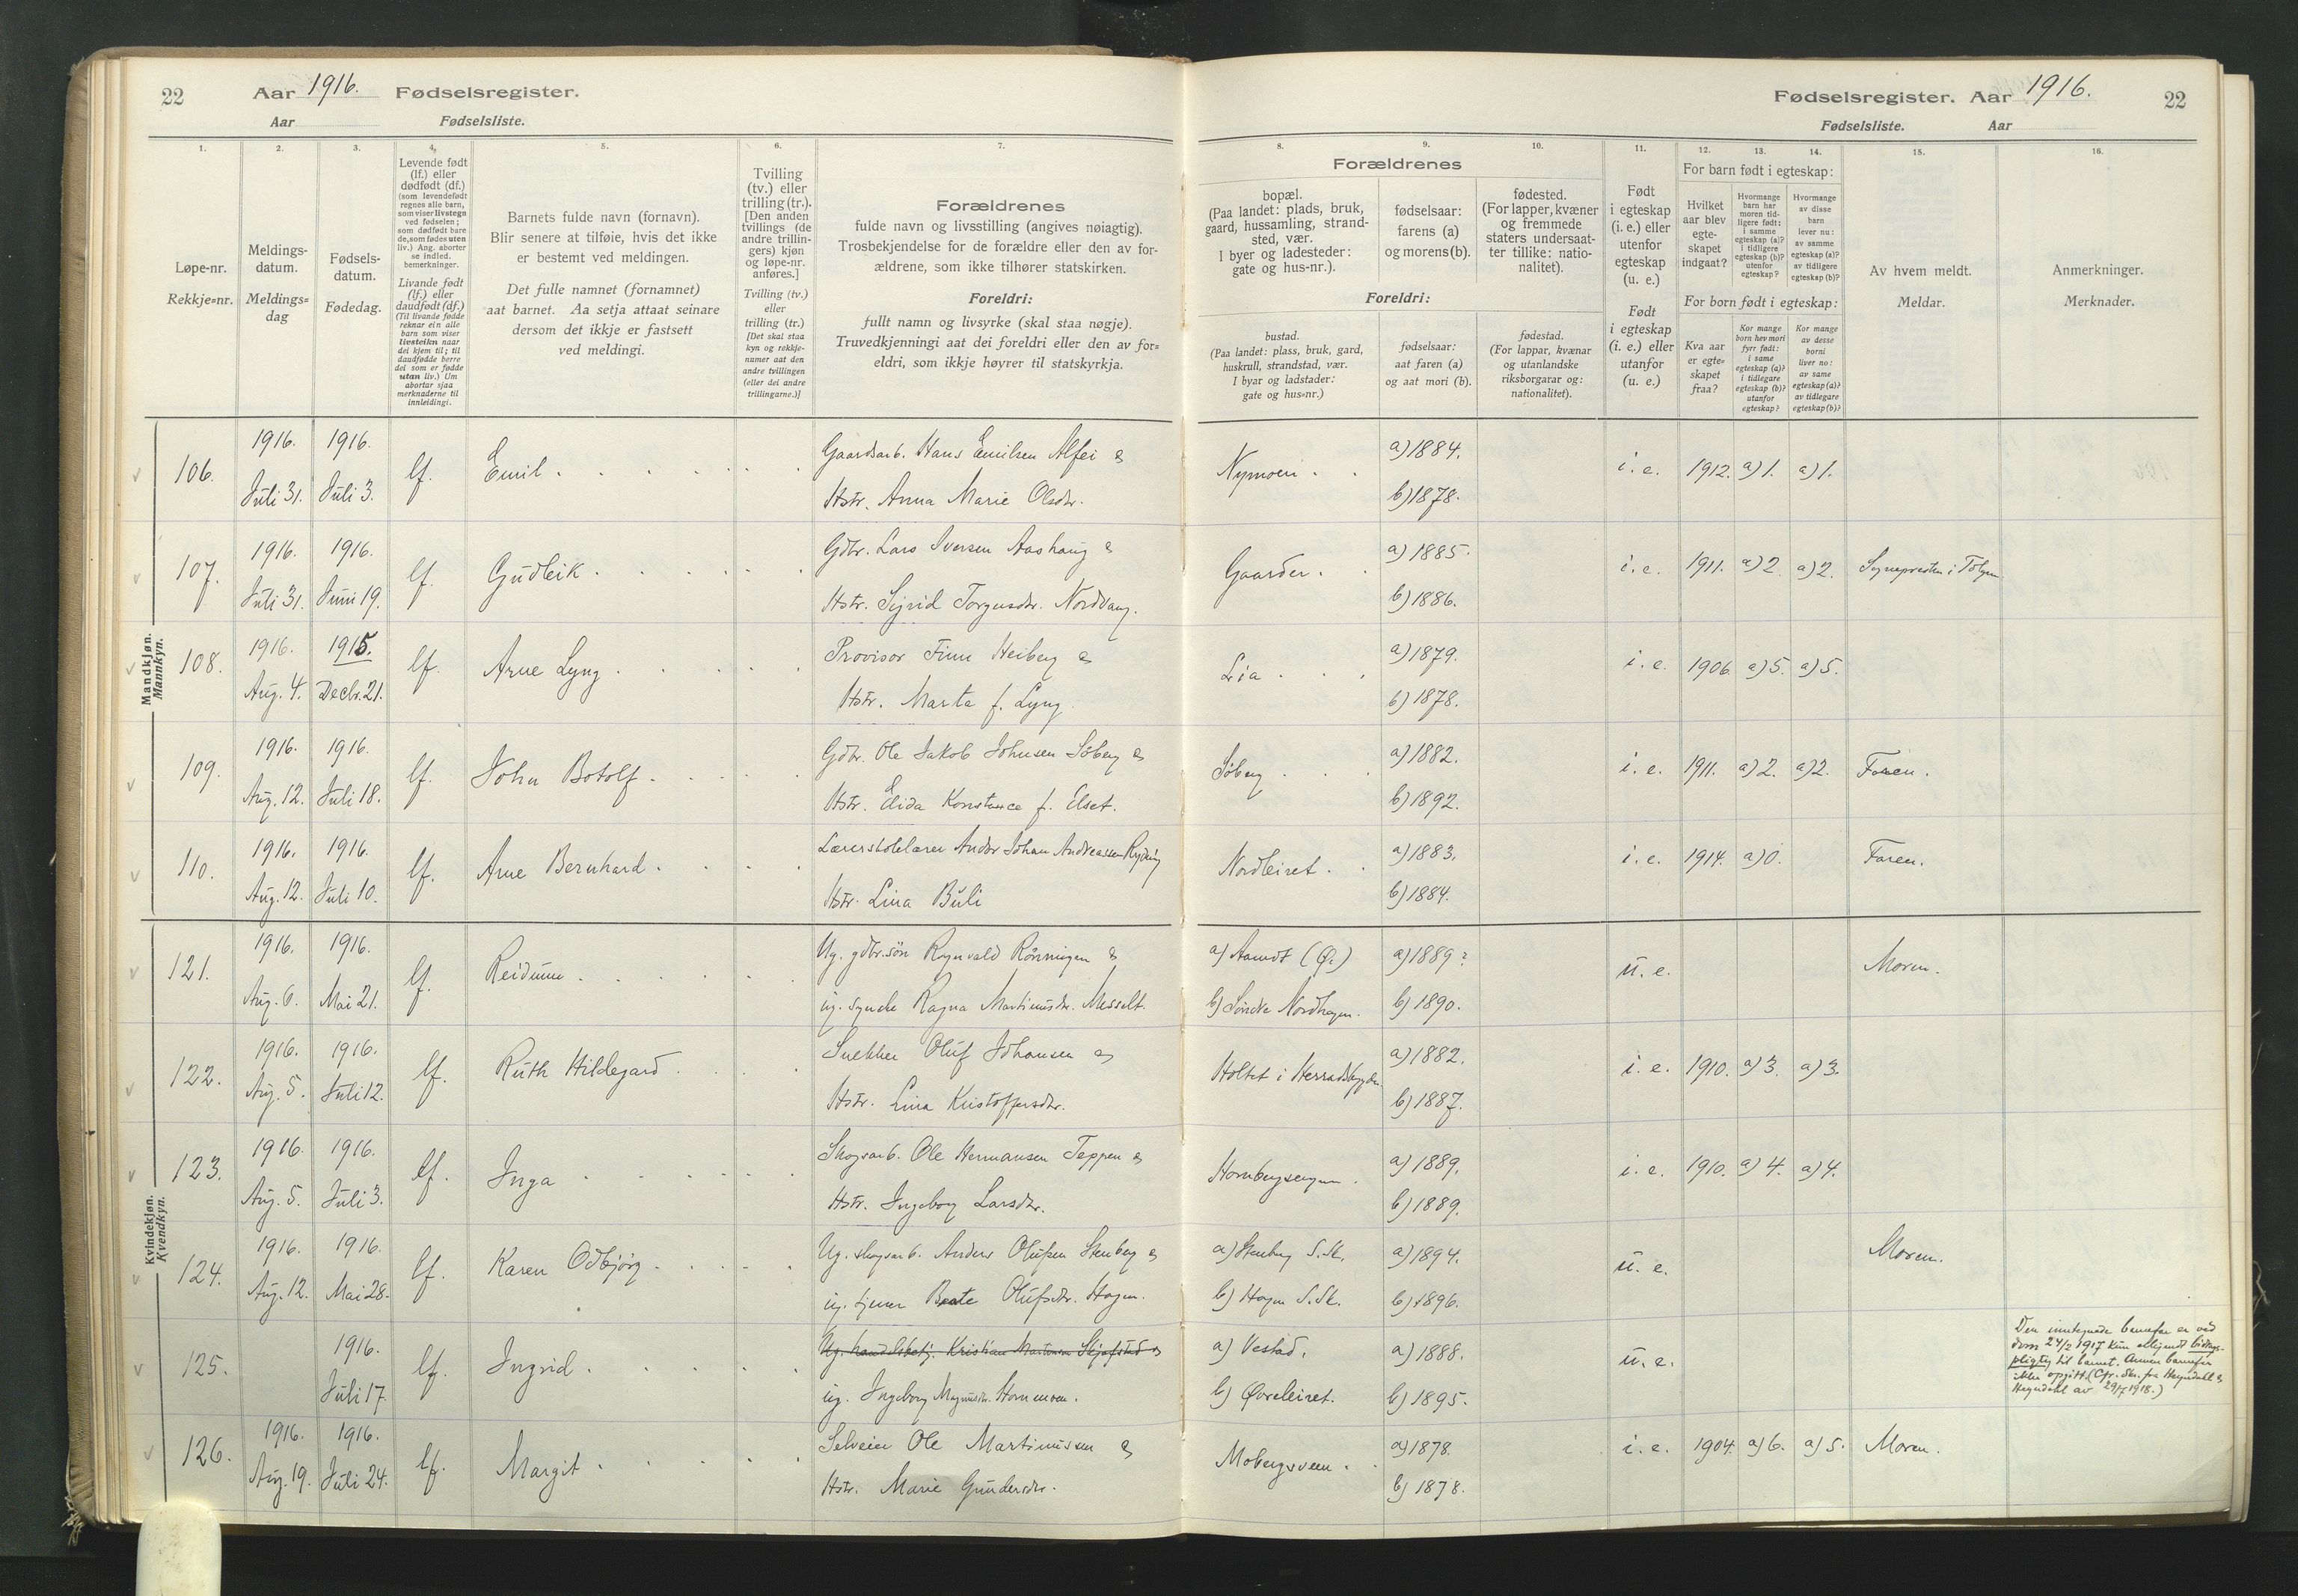 22 Aar 1916. Fødselsregister.
Aar Fødselsliste.
1. 2. 3. 4. 5. 6. 7.
Løpe-nr.
Rekkje=nr.
Meldings-
datum.
Meldings=
dag
Fødsels-
datum.
Fødedag.
Levende født
(lf.) eller
dødfødt (df.)
(som levendefødt
regnes alle barn,
som viser livstegn
ved fødselen;
som dødfødt bare
de, som fødes uten
liv.) Ang. aborter
se indled.
bemerkninger.
Livande født
(lf.) eller
daudfødt (df.)
(Til livande fødde
reknar ein alle
barn som viser
livsteikn naar
dei kjem til; til
daudfødde berre
dei som er fødde
utan liv.) Um
abortar sjaa
merknaderne til
innleidingi.
Barnets fulde navn (fornavn).
Blir senere at tilføie, hvis det ikke
er bestemt ved meldingen.
Det fulle namnet (fornamnet)
aat barnet. Aa setja attaat seinare
dersom det ikkje er fastsett
ved meldingi.
Tvilling
(tv.) eller
trilling (tr.).
[Den anden
tvillings (de
andre trillin-
gers) kjøn
og løpe-nr.
anføres.]
Tvilling (tv.)
eller
trilling (tr.)
[Det skal staa
kyn og rekkje-
numer aat den
andre tvillingen
(eller dei andre
trillingarne.)]
Forældrenes
fulde navn og livsstilling (angives nøiagtig).
Trosbekjendelse for de forældre eller den av for-
ældrene, som ikke tilhører statskirken.
Foreldri:
fullt namn og livsyrke (skal staa nøgje).
Truvedkjenningi aat dei foreldri eller den av for=
eldri, som ikkje høyrer til statskyrkja.
Fødselsregister. Aar 1916. 22
Fødselsliste. Aar
8. 9. 10. 11. 12. 13. 14. 15. 16.
Forældrenes
bopæl.
(Paa landet: plads, bruk,
gaard, hussamling, strand-
sted, vær.
I byer og ladesteder:
gate og hus-nr.).
fødselsaar:
farens (a)
og morens (b).
fødested.
(For lapper, kvæner
og fremmede
staters undersaat-
ter tillike: natio-
nalitet).
Foreldri:
bustad.
(Paa landet: plass, bruk, gard,
huskrull, strandstad, vær.
I byar og ladstader:
gate og hus=nr.)
fødselsaar:
aat faren (a)
og aat mori (b).
fødestad.
(For lappar, kvænar
og utanlandske
riksborgarar og:
nationalitet).
Født
i egteskap
(i. e.) eller
utenfor
egteskap
(u. e.)
Født
i egteskap
(i. e.) eller
utanfor
(u. e.)
For barn født i egteskap:
Hvilket
aar blev
egte-
skapet
indgaat?
Hvormange
barn har
moren tid-
ligere født:
i samme
egteskap (a)?
i tidligere
egteskap (b)?
utenfor
egteskap?
Hvormange
av disse
barn
lever nu:
av samme
egteskap (a)?
av tidligere
egteskap (b)?
For born født i egteskap:
Kva aar
er egte=
skapet
fraa?
Kor mange
born hev mori
fyrr født:
i same
egteskap (a)?
i tidlegare
egteskap (b)?
utanfor
egteskap?
Kor mange
av desse
borni
liver no:
av same
egteskap (a)?
av tidlegare
egteskap (b)?
Av hvem meldt.
Meldar.
Anmerkninger.
Merknader.
Mandkjøn.
Mannkyn.
106. 1916. Juli 31. 1916. Juli 3. lf. Emil
Gaardsarb. Hans Emilsen Alfei &
Hstr. Anna Marie Olsdtr.
Nymoen a) 1884. b) 1878. i. e. 1912. a) 1. a) 1.
107. 1916. Juli 31. 1916. Juni 19. lf. Gudleik
Gdbr. Lars Iversen Aashaug &
Hstr. Sigrid Torgusdtr. Nordvang.
Gaarder. a) 1885. b) 1886. i. e. 1911. a) 2. a) 2. Sognepresten i Tolgen
108. 1916. Aug. 4. 1915. Decbr. 21. lf. Arne Lyng
Provisor Finn Heiberg &
Hstr. Marta f. Lyng
Lia a) 1879. b) 1878. i. e. 1906. a) 5. a) 5.
109. 1916. Aug. 12. 1916. Juli 18. lf. John Botolf
Gdbr. Ole Jakob Johnsen Søberg &
Hstr. Elida Konstance f. Elset.
Søberg a) 1882. b) 1892. i. e. 1911. a) 2. a) 2. Faren.
110. 1916. Aug. 12. 1916. Juli 10. lf. Arne Bernhard
Lærerskolelærer Andor Johan Andreassen
Hstr. Lina Buli
Nordleiret. a) 1883. b) 1884. i. e. 1914. a) 0. Faren.
Kvindekjøn.
Kvendkyn.
121. 1916. Aug. 6. 1916. Mai 21. lf. Reidunn
Ug. gdbr.søn Rognvald Rønningen &
ug. syerske Ragna Martinusdtr. Messelt.
a) Aamot (Ø.) b) Søndre Nordhagen. a) 1889? b) 1890. u. e. Moren.
122. 1916. Aug. 5. 1916. Juli 12. lf. Ruth Hildegard
Snekker Oluf Johansen &
Hstr. Lina Kristoffersdtr.
Holtet i Herradsbygden a) 1882. b) 1887. i. e. 1910. a) 3. a) 3.
123. 1916. Aug. 5. 1916. Juli 3. lf. Inga
Skogsarb. Ole Hermansen Teppen &
Hstr. Ingeborg Larsdtr.
Hornbergsengen. a) 1889. b) 1889. i. e. 1910. a) 4. a) 4.
124. 1916. Aug. 12. 1916. Mai 28. lf. Karen Odbjørg
Ug. skogsarb. Anders Olufsen Stenberg &
ug. tjener Beate Olufsdtr. Hagen.
a) Stenberg S. Sk. b) Hagen S. Sk. a) 1894. b) 1896. u. e. Moren.
125. 1916. Juli 17. lf. Ingrid
Ug. handelsbetj. Kristian Martinsen Skjefstad &
ug. Ingeborg Magnusdtr. Hornmoen.
a) Vestad. b) Øvreleiret. a) 1888. b) 1895. u. e.
Den inntegnede barnefar er ved
dom 24/2 1917 kun erkjendt bidrags-
pligtig til barnet. Annen barnefar
ikke opgitt. (Cfr. skr. fra Heyerdahl &
Heyerdahl av 29/7 1918.)
126. 1916. Aug. 19. 1916. Juli 24. lf. Margit
Selveier Ole Martinussen &
Hstr. Marie Gundersdtr.
Mobergsveen. a) 1878. b) 1878. i. e. 1904. a) 6. a) 5. Moren.